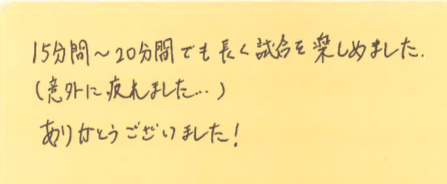 15分間～20分間でも長く試合を楽しめました.
(意外に疲れました…)
ありがとうございました!